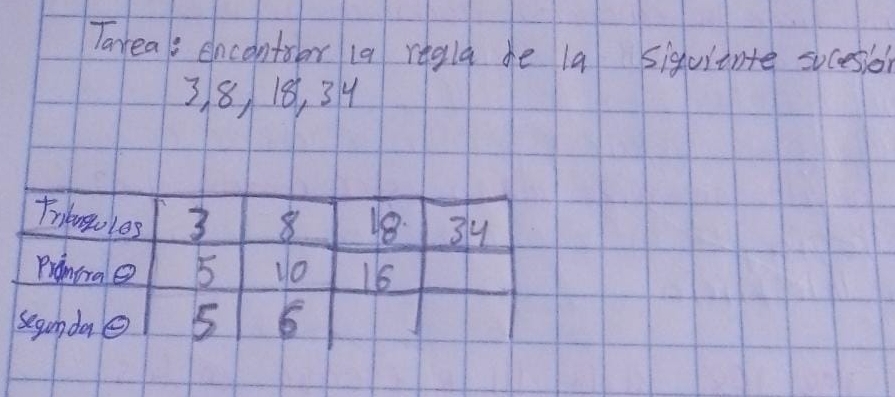 Tarea: encontrar la regla de la siguiente sucesión
3,8, 18,34
Triángulos 3 8 18 34
Primera ⊖ 5 10 16
Segunda ⊖ 5 6